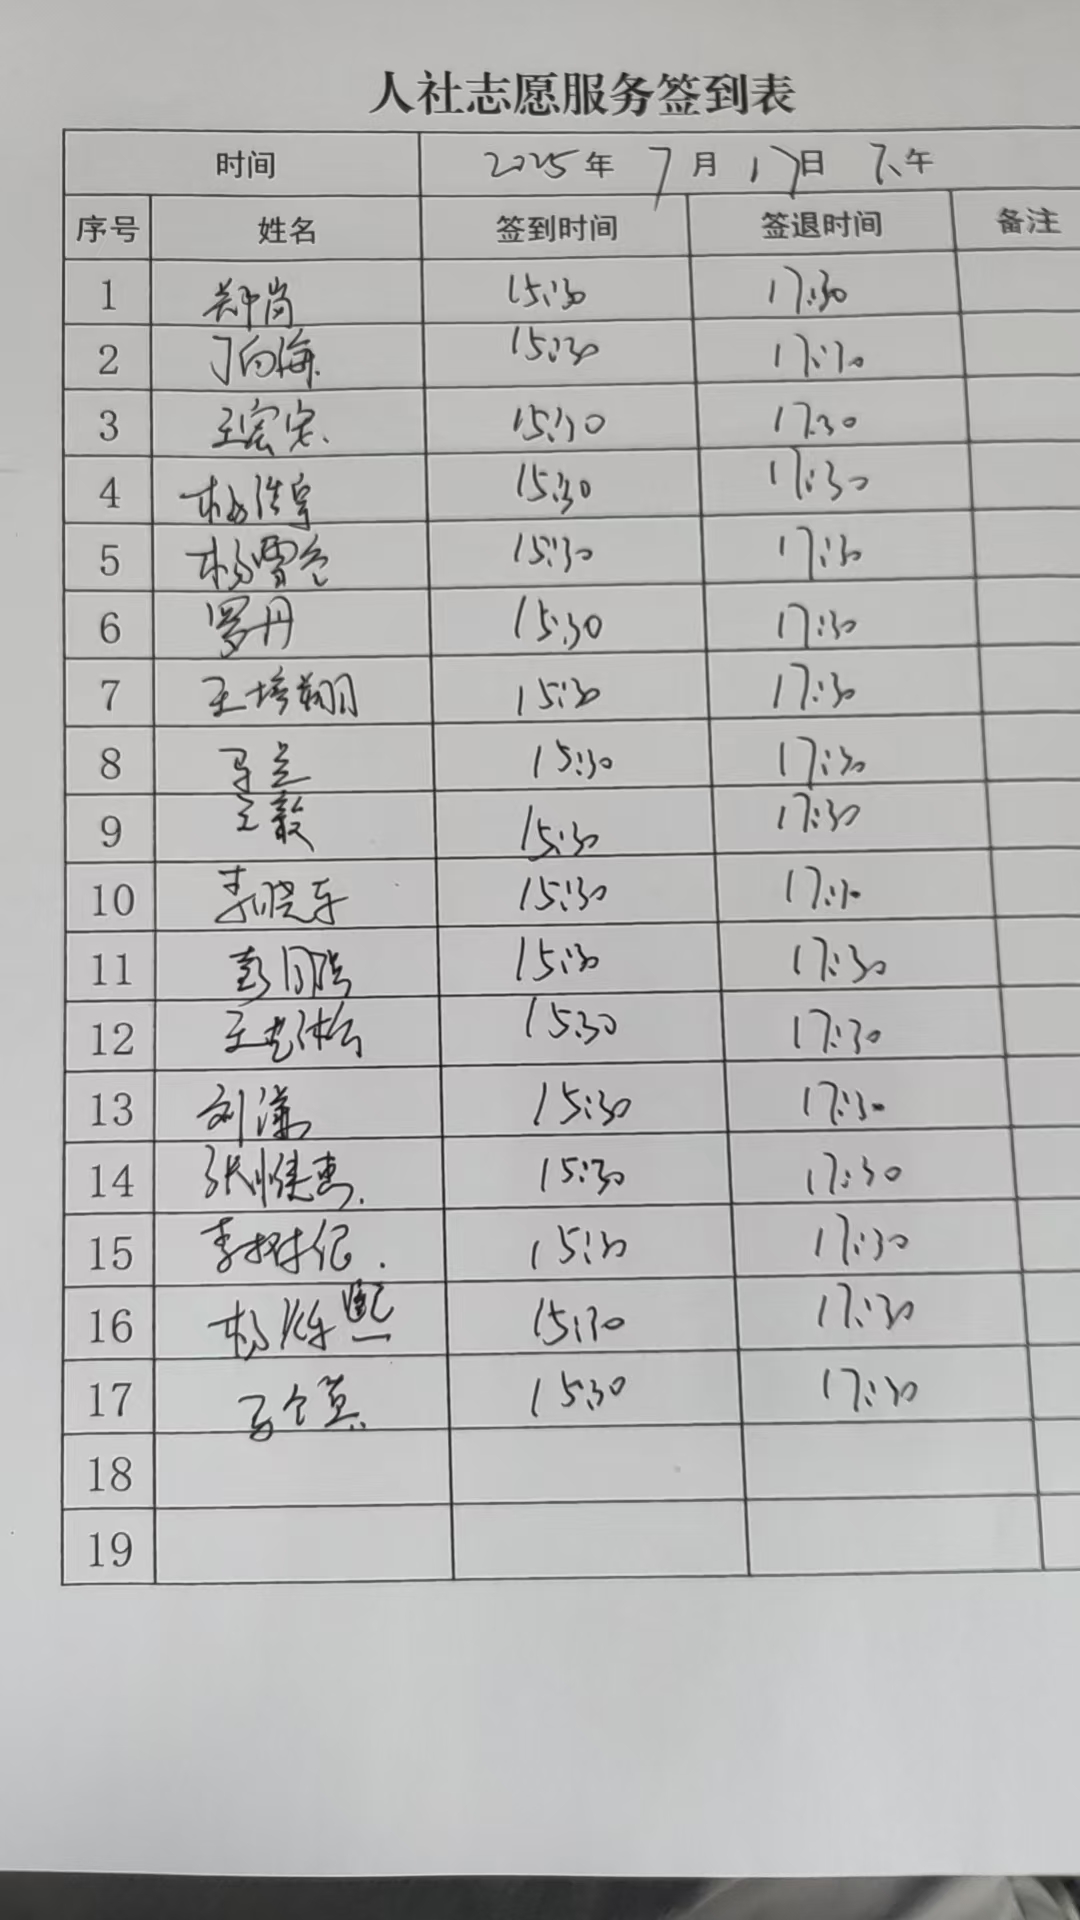 人社志愿服务签到表
时间 2025年 7月 17日 下午
序号 姓名 签到时间 签退时间 备注
1 郑岗 15:30 17:30
2 丁向海 15:30 17:30
3 王宏宋 15:30 17:30
4 杨 15:30 17:30
5 杨雪 15:30 17:30
6 罗丹 15:30 17:30
7 王培翔 15:30 17:30
8 马兰 15:30 17:30
9 王毅 15:30 17:30
10 李晓东 15:30 17:30
11 彭 15:30 17:30
12 王 15:30 17:30
13 刘潇 15:30 17:30
14 张 惠 15:30 17:30
15 李树 15:30 17:30
16 杨 熙 15:30 17:30
17 15:30 17:30
18
19